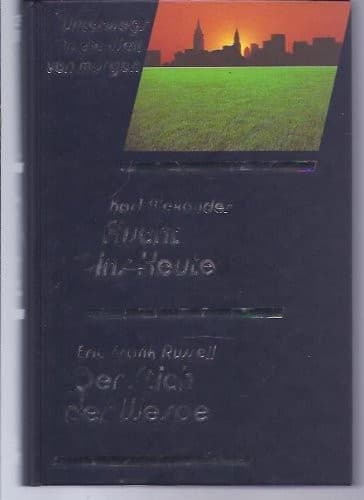 Unterwegs
in die Welt
von morgen
Karl Alexander
Flucht
ins Heute
Eric Frank Russell
Der Stich
der Wespe